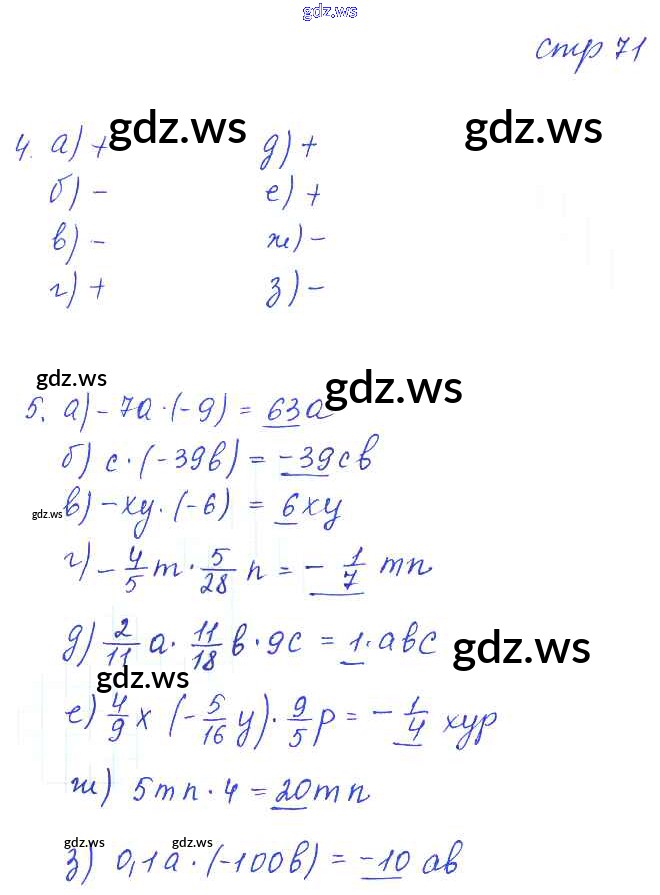 gdz.ws
стр 71
gdz.ws gdz.ws
4. а) + д) +
б) - е) +
в) - ж) -
г) + з) -
gdz.ws gdz.ws
5. а) - 7a · (-9) = 63a
б) c · (-39b) = -39cb
gdz.ws в) -xy · (-6) = 6xy
г) - 4/5 m · 5/28 n = - 1/7 mn
д) 2/11 a · 11/18 b · 9c = 1 · abc
gdz.ws gdz.ws
е) 4/9 x (- 5/16 y) · 9/5 p = - 1/4 xyp
ж) 5mn · 4 = 20mn
gdz.ws gdz.ws
з) 0,1a · (-100b) = -10 ab